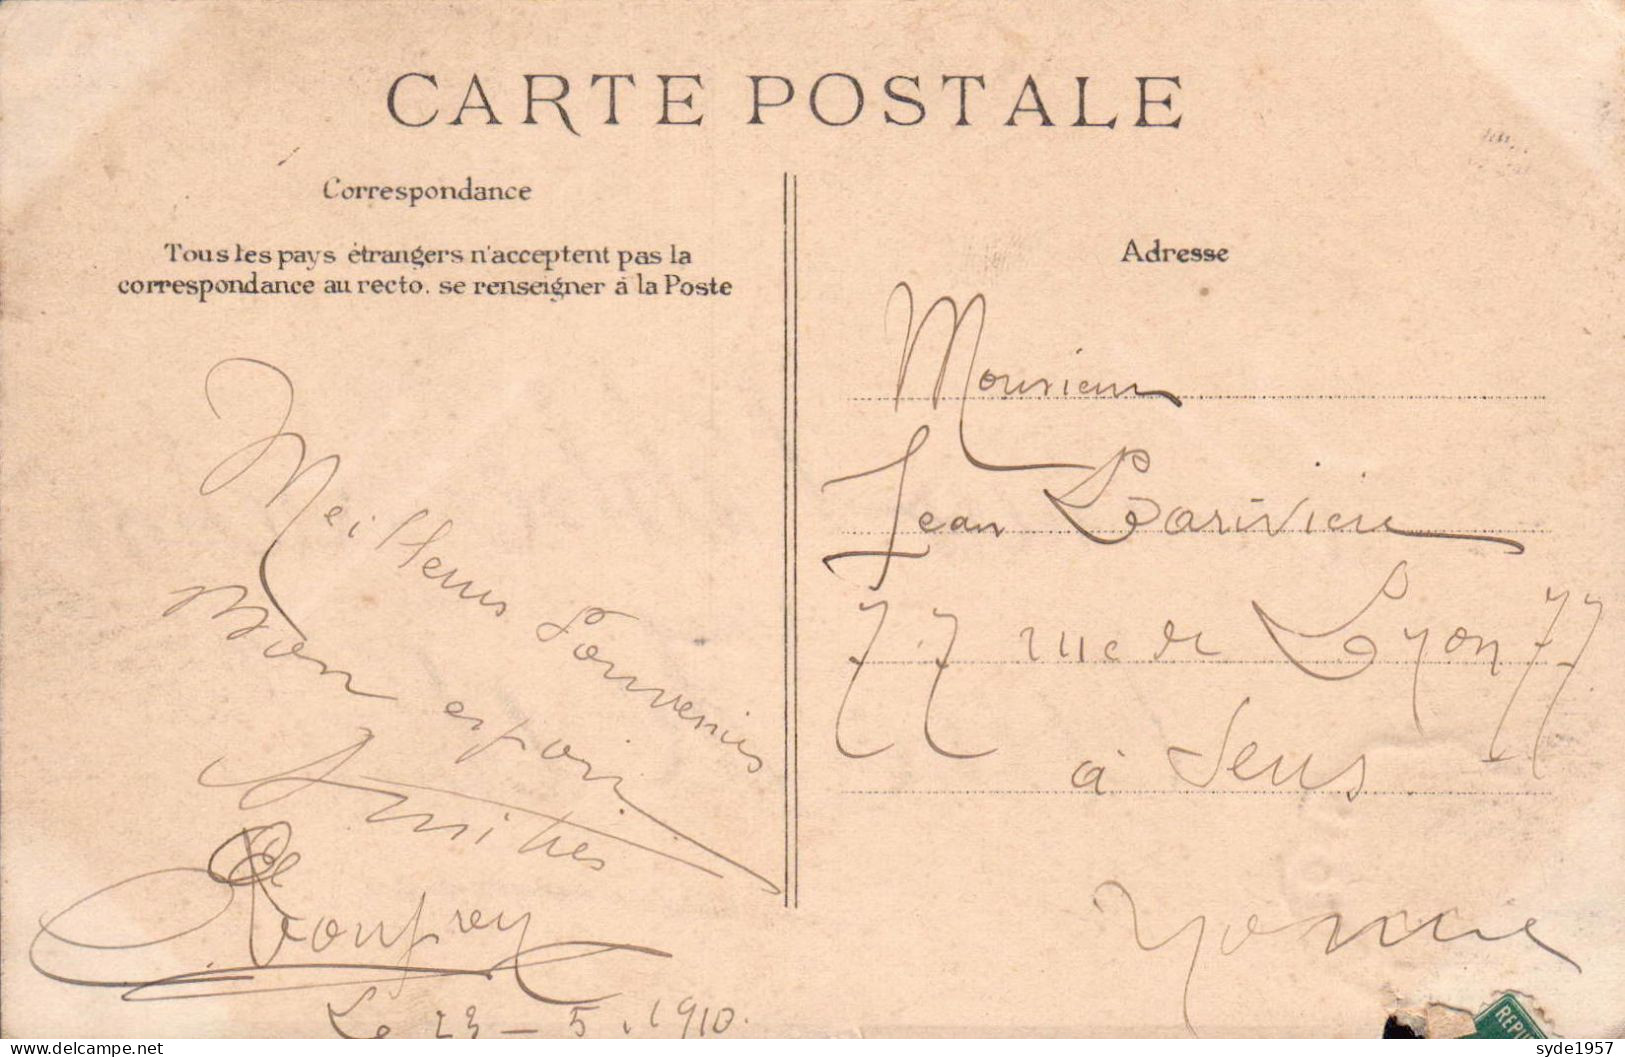 CARTE POSTALE
Correspondance
Tous les pays étrangers n'acceptent pas la
correspondance au recto. se renseigner à la Poste
Meilleurs Souvenirs
Bon espoir
Amitiés
Le 23 - 5. 1910.
Adresse
Monsieur
Jean Larivière
77 rue de Lyon 77
à Sens
Yonne
REPU
syde1957